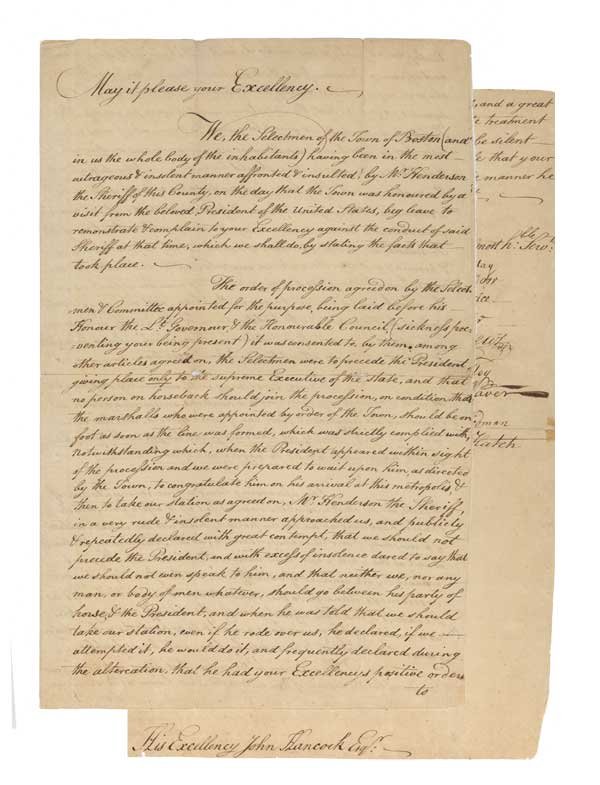 May it please your Excellency.
We, the Selectmen of the Town of Boston (and
in us the whole body of the inhabitants) having been in the most
outrageous & insolent manner affronted & insulted, by Mr. Henderson
the Sheriff of this County, on the day that the Town was honoured by a
visit from the beloved President of the United States, beg leave to
remonstrate & complain to your Excellency against the conduct of said
Sheriff at that time, which we shall do, by stating the facts that
took place.
The order of procession agreed on by the Select-
=men & Committee appointed for the purpose, being laid before his
Honour the Lt. Governour, & the Honourable Council, (sickness pre-
=venting your being present) it was consented to by them, among
other articles agreed on, the Selectmen were to precede the President,
giving place only to the supreme Executive of the State, and that
no person on horseback should join the procession, on condition that
the marshalls who were appointed by order of the Town, should be on
foot as soon as the line was formed, which was strictly complied with,
notwithstanding which, when the President appeared within sight
of the procession and we were prepared to wait upon him, as directed
by the Town, to congratulate him on his arrival at this metropolis &
then to take our station as agreed on, Mr. Henderson the Sheriff,
in a very rude & insolent manner approached us, and publicly
& repeatedly declared with great contempt, that we should not
precede the President, and with excess of insolence dared to say that
we should not even speak to him, and that neither we, nor any
man, or body of men whatever, should go between his party of
horse, & the President, and when he was told that we should
take our station, even if he rode over us, he declared, if we
attempted it, he would do it, and frequently declared during
the altercation, that he had your Excellency's positive orders
to
and a great
treatment
be silent
that your
manner he
most hble. Servts.
man
Hatch
His Excellency John Hancock Esqr.